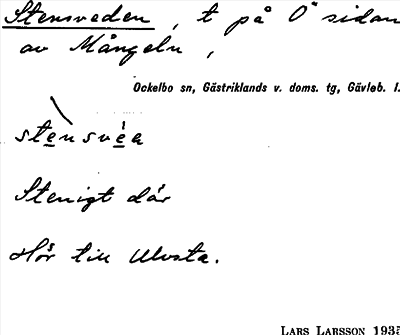 Stensveden, t på Ö sidan
av Mången,
Ockelbo sn, Gästriklands v. doms. tg, Gävleb. l.
stensvea
Stenigt där
Hör till Ulvsta.
LARS LARSSON 1935